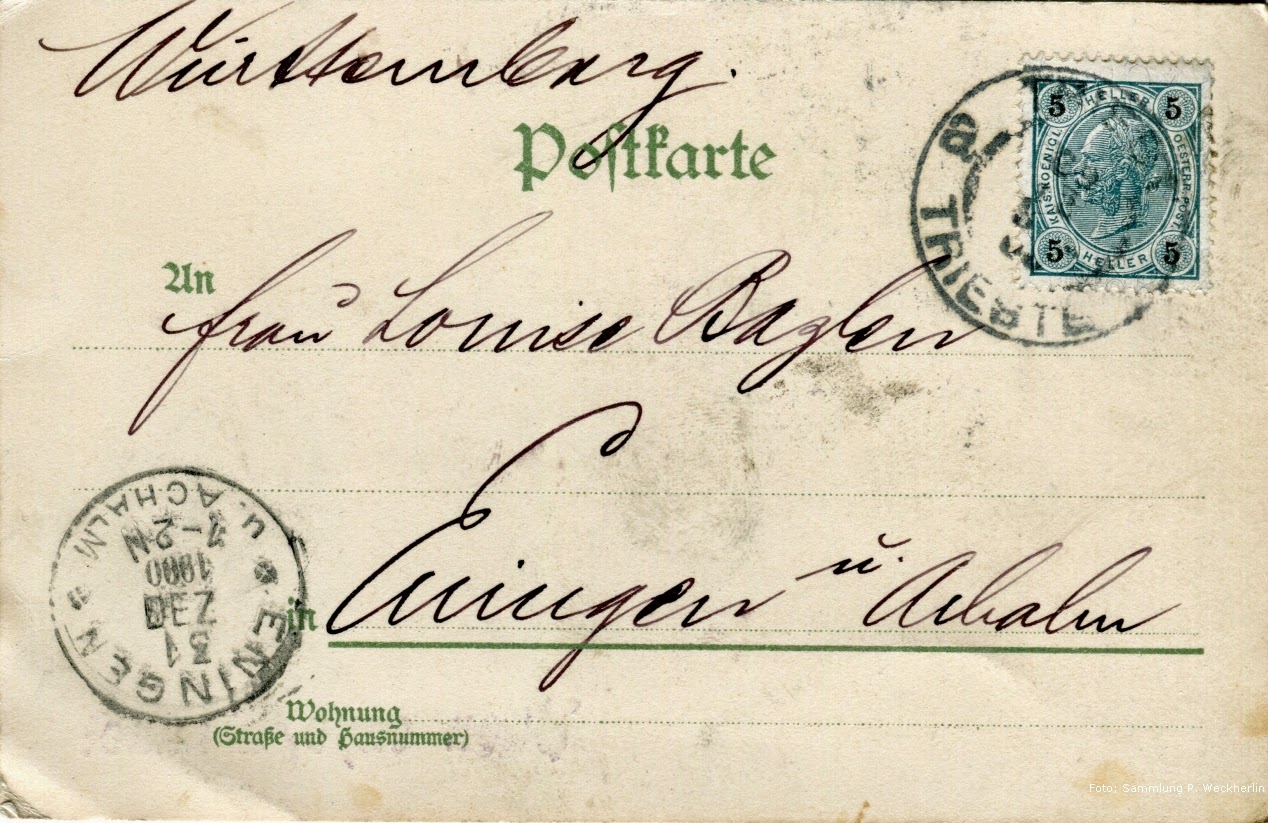 Württemberg.
Postkarte
5 HELLER 5
KAIS. KOENIGL. OESTERR. POST.
5 HELLER 5
TRIESTE
An
Frau Louise Bazlen
ENINGEN
u. ACHALM
31
DEZ
1900
1-2N
in Eningen u. Achalm
Wohnung
(Straße und Hausnummer)
Foto: Sammlung P. Weckherlin